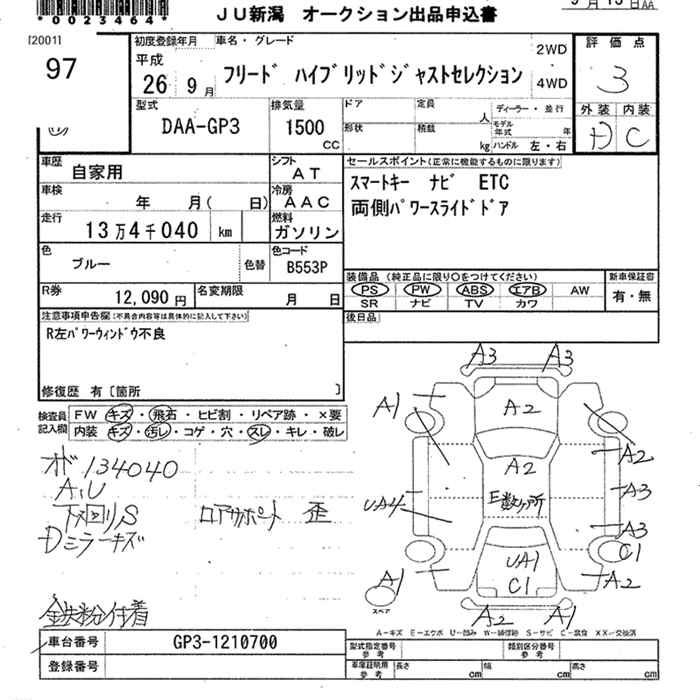 *0023464*
JU新潟 オークション出品申込書
[2001]
97
初度登録年月
平成
26 9月
車名・グレード
フリード ハイブリッドジャストセレクション
2WD
4WD
評価点
3
型式
DAA-GP3
排気量
1500
CC
ドア
定員
人
形状
積載
kg
ディーラー・並行
モデル年式
年
ハンドル 左・右
外装
内装
D
C
車歴
自家用
シフト
AT
車検
年 月( 日)
冷房
AAC
走行
13万4千040 km
燃料
ガソリン
色
ブルー
色替
色コード
B553P
セールスポイント(正常に機能するものに限ります)
スマートキー ナビ ETC
両側パワースライドドア
R券
12,090円
名変期限
月 日
装備品(純正品に限り○をつけてください)
PS PW ABS エアB AW
SR ナビ TV カワ
新車保証書
有・無
注意事項申告欄(不具合内容等は具体的に記入して下さい)
R左パワーウィンドウ不良
後日品
修復歴 有[箇所 ]
検査員記入欄
FW キズ・飛石・ヒビ割・リペア跡・×要
内装 キズ・汚レ・コゲ・穴・スレ・キレ・破レ
オド 134040
A,U
下回りS ロアサポート 歪
Dミラーキズ
鉄粉付着
A3 A3
A1
A2
A2
A2
UA4
E数ヶ所
A3
A3
UA1
C1
C1
A1
A2
スペア
A2 A1
A−キズ E−エクボ U−凹み W−補修跡 S−サビ C−腐食 XX−交換済
車台番号
GP3-1210700
登録番号
型式指定番号
参考
類別区分番号
参考
車庫証明用
参考
長さ
cm
幅
cm
高さ
cm